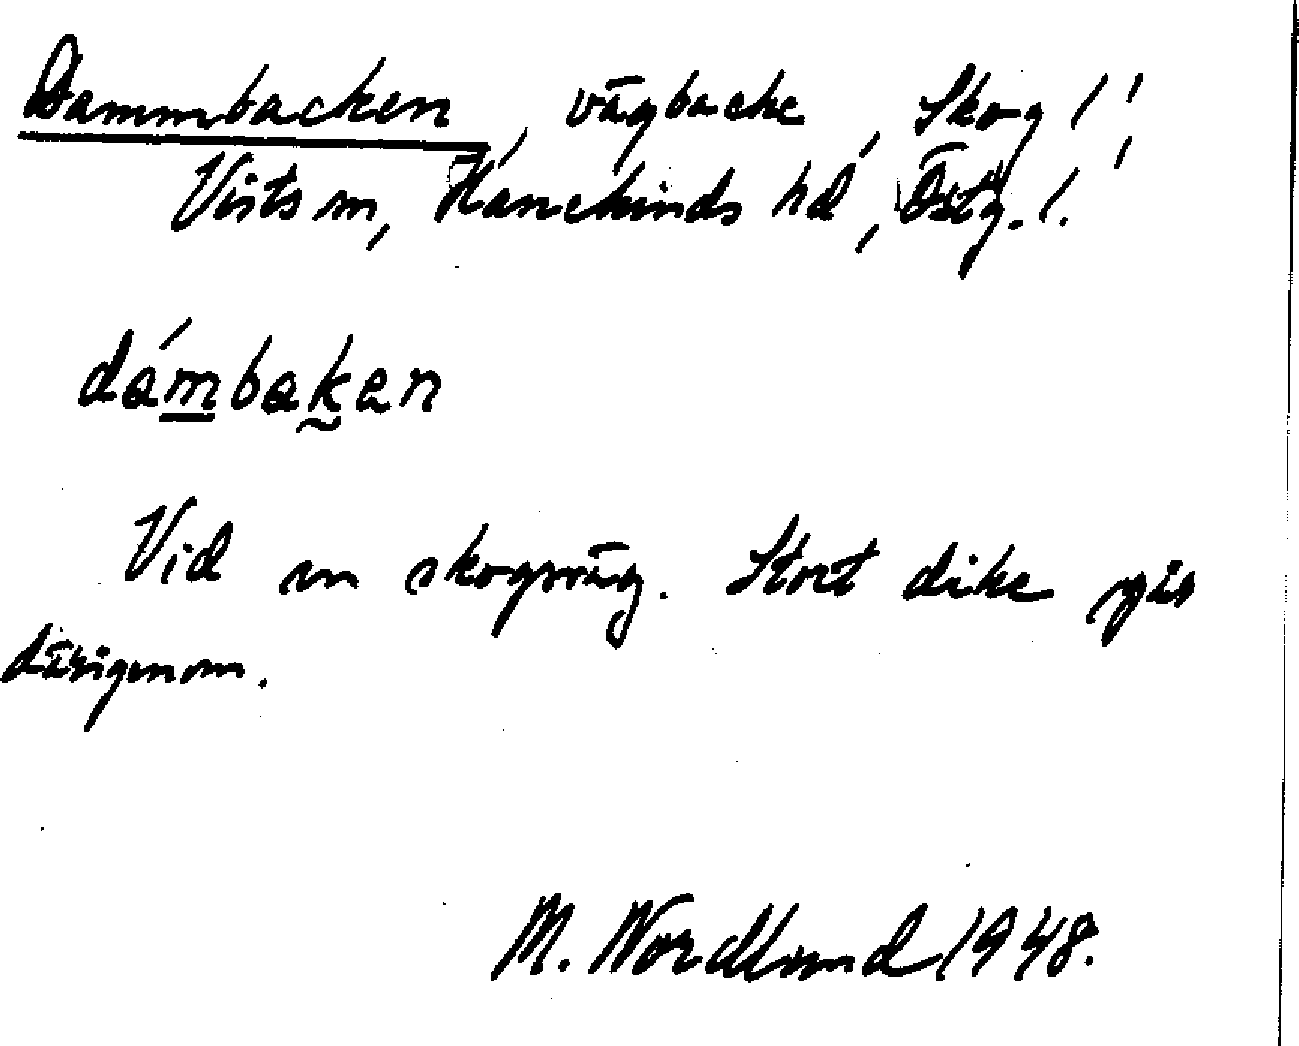 Dammbacken, vägbacke, Skog 1',
Vists sn, Hanekinds hd, Östg. l.
dámbaken
Vid en skogsväg. Stort dike går
därigenom.
M. Nordlund 1948.